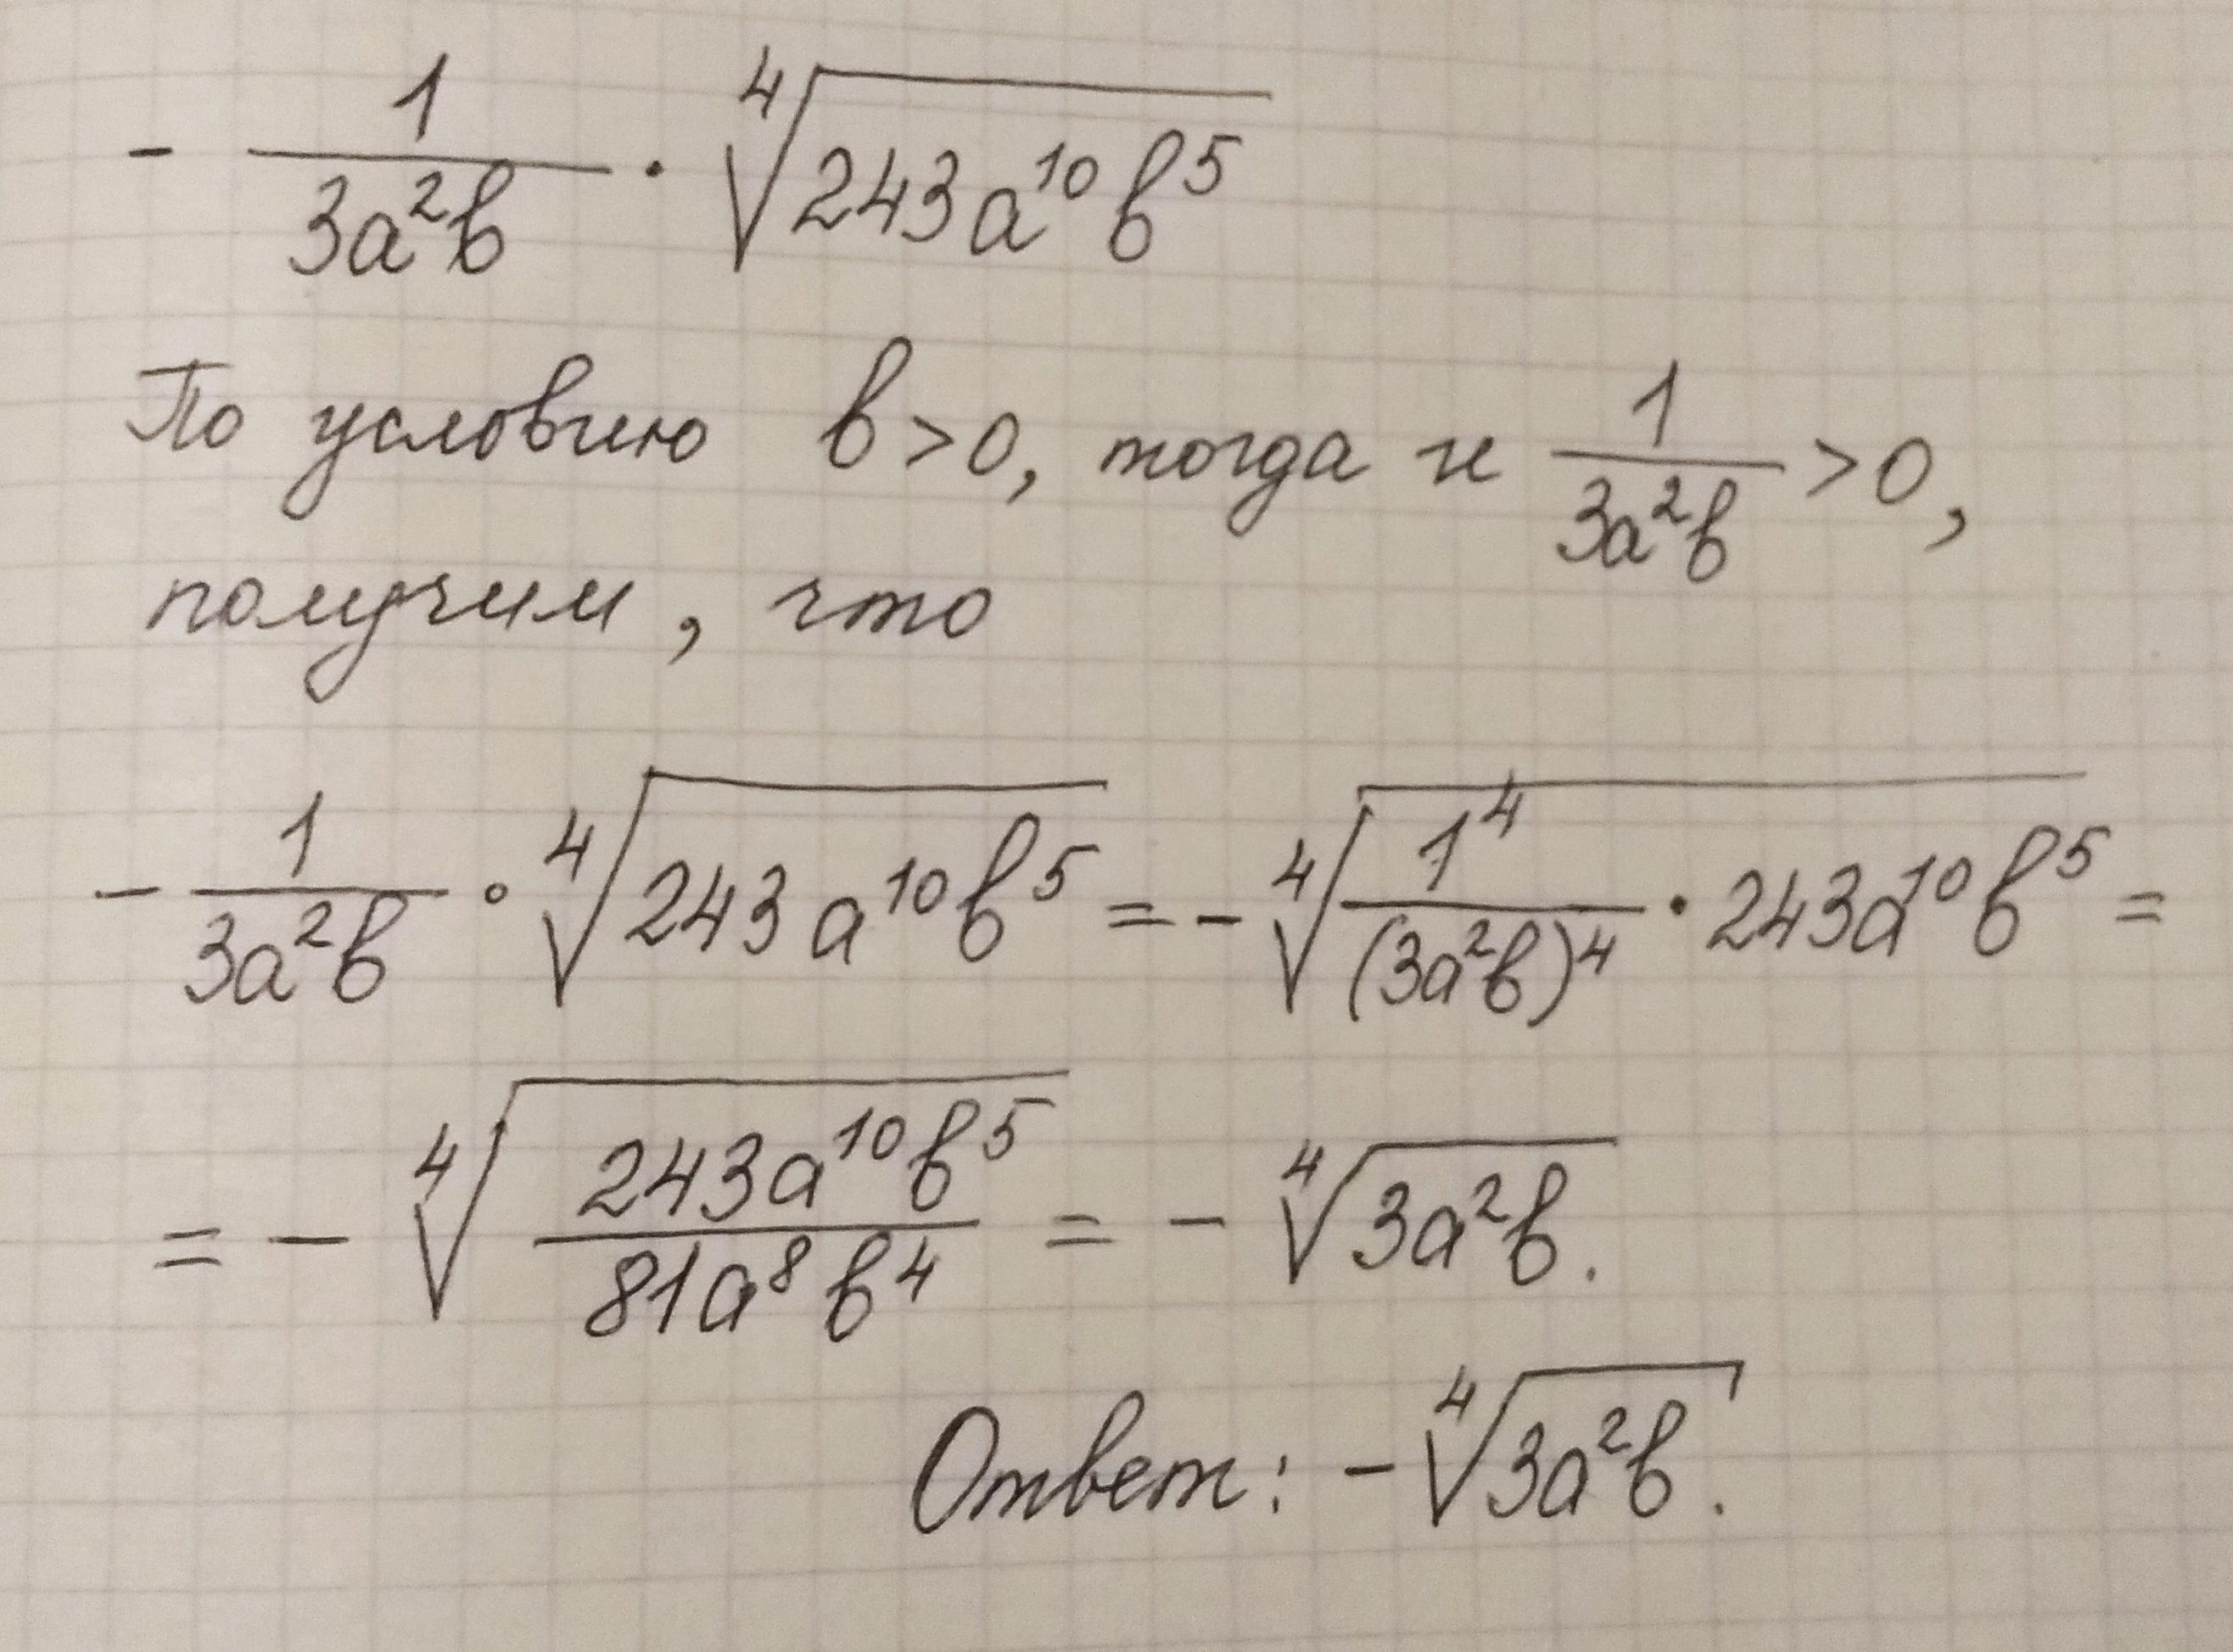 - 1/(3a²b) · ⁴√(243a¹⁰b⁵)
По условию b>0, тогда и 1/(3a²b) >0,
получим, что
- 1/(3a²b) · ⁴√(243a¹⁰b⁵) = - ⁴√(1⁴/(3a²b)⁴ · 243a¹⁰b⁵) =
= - ⁴√(243a¹⁰b⁵/(81a⁸b⁴)) = - ⁴√(3a²b).
Ответ: - ⁴√(3a²b).